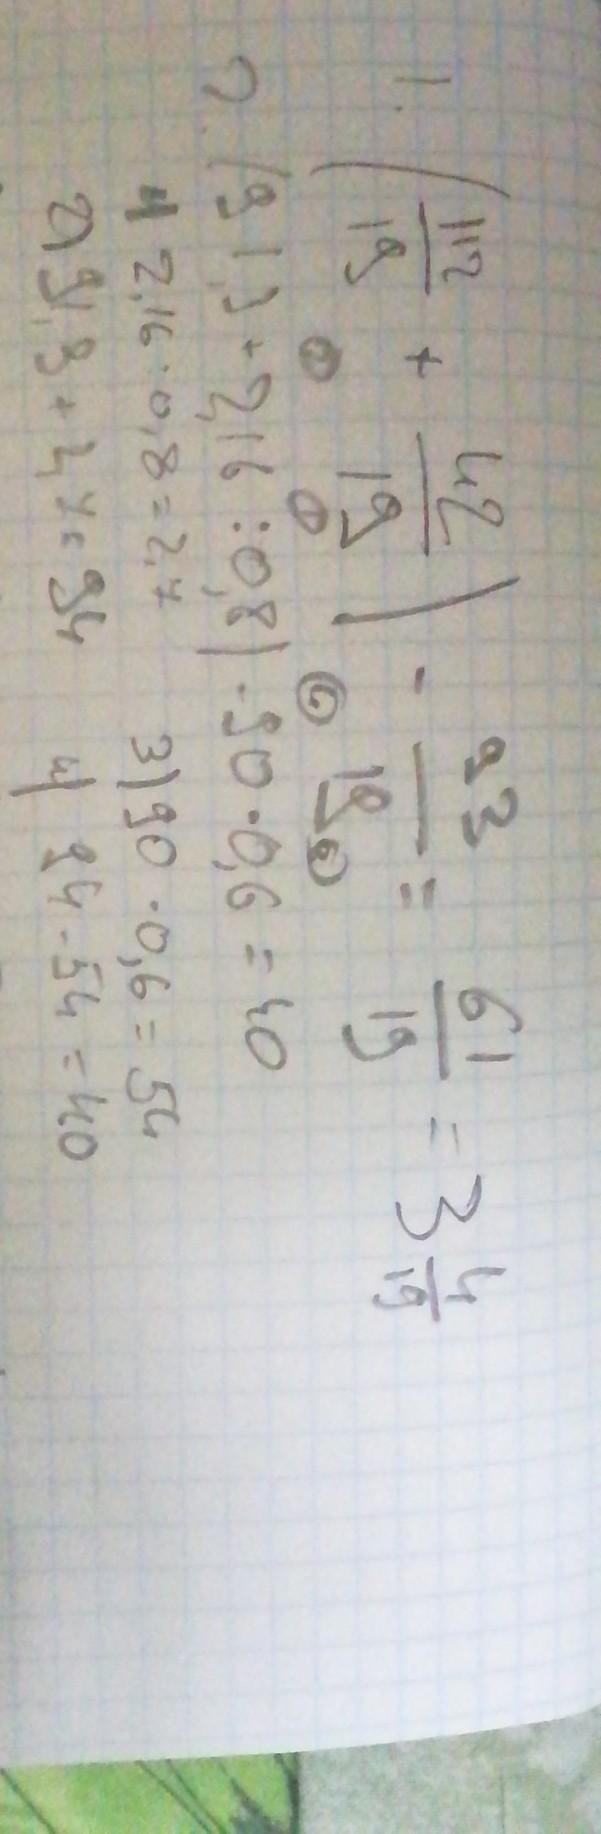 1. (112/19 + 42/19) - 93/19 = 61/19 = 3 4/19
2. (91,3 + 2,16 : 0,8) - 90 · 0,6 = 40
1) 2,16 : 0,8 = 2,7 3) 90 · 0,6 = 54
2) 91,3 + 2,7 = 94 4) 94 - 54 = 40